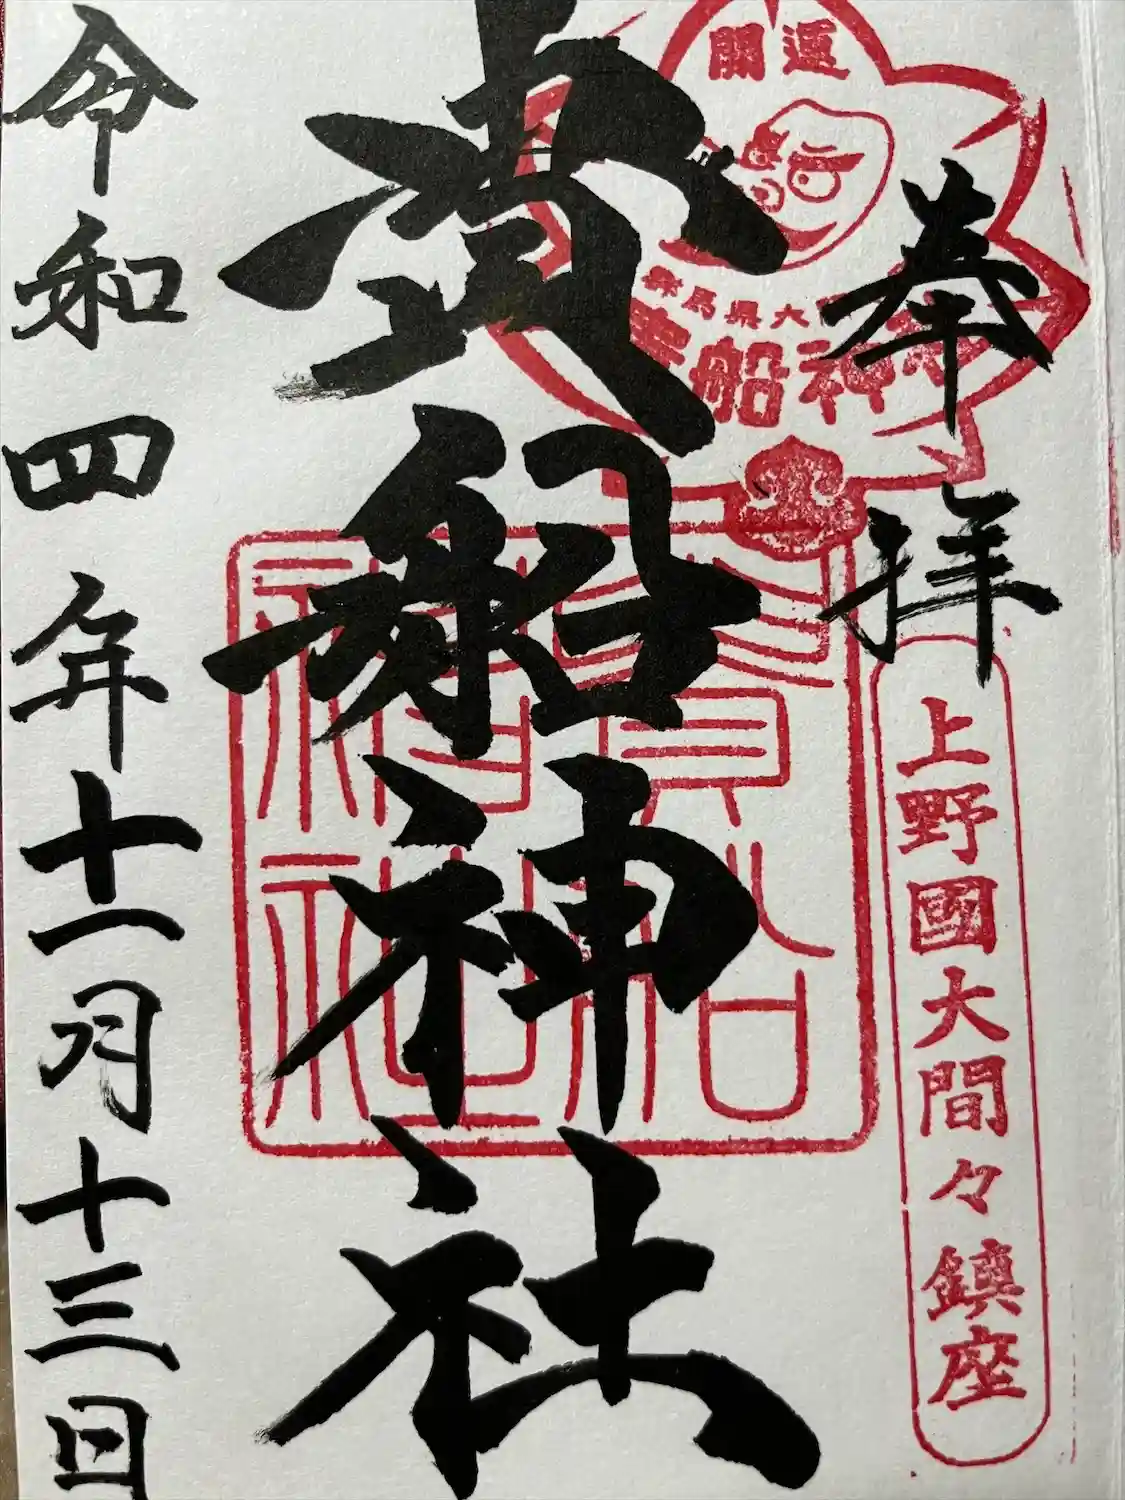 奉拝
上野國大間々鎮座
開運
群馬県大
貴船神社
貴船神社
貴船神社
令和四年十一月十三日